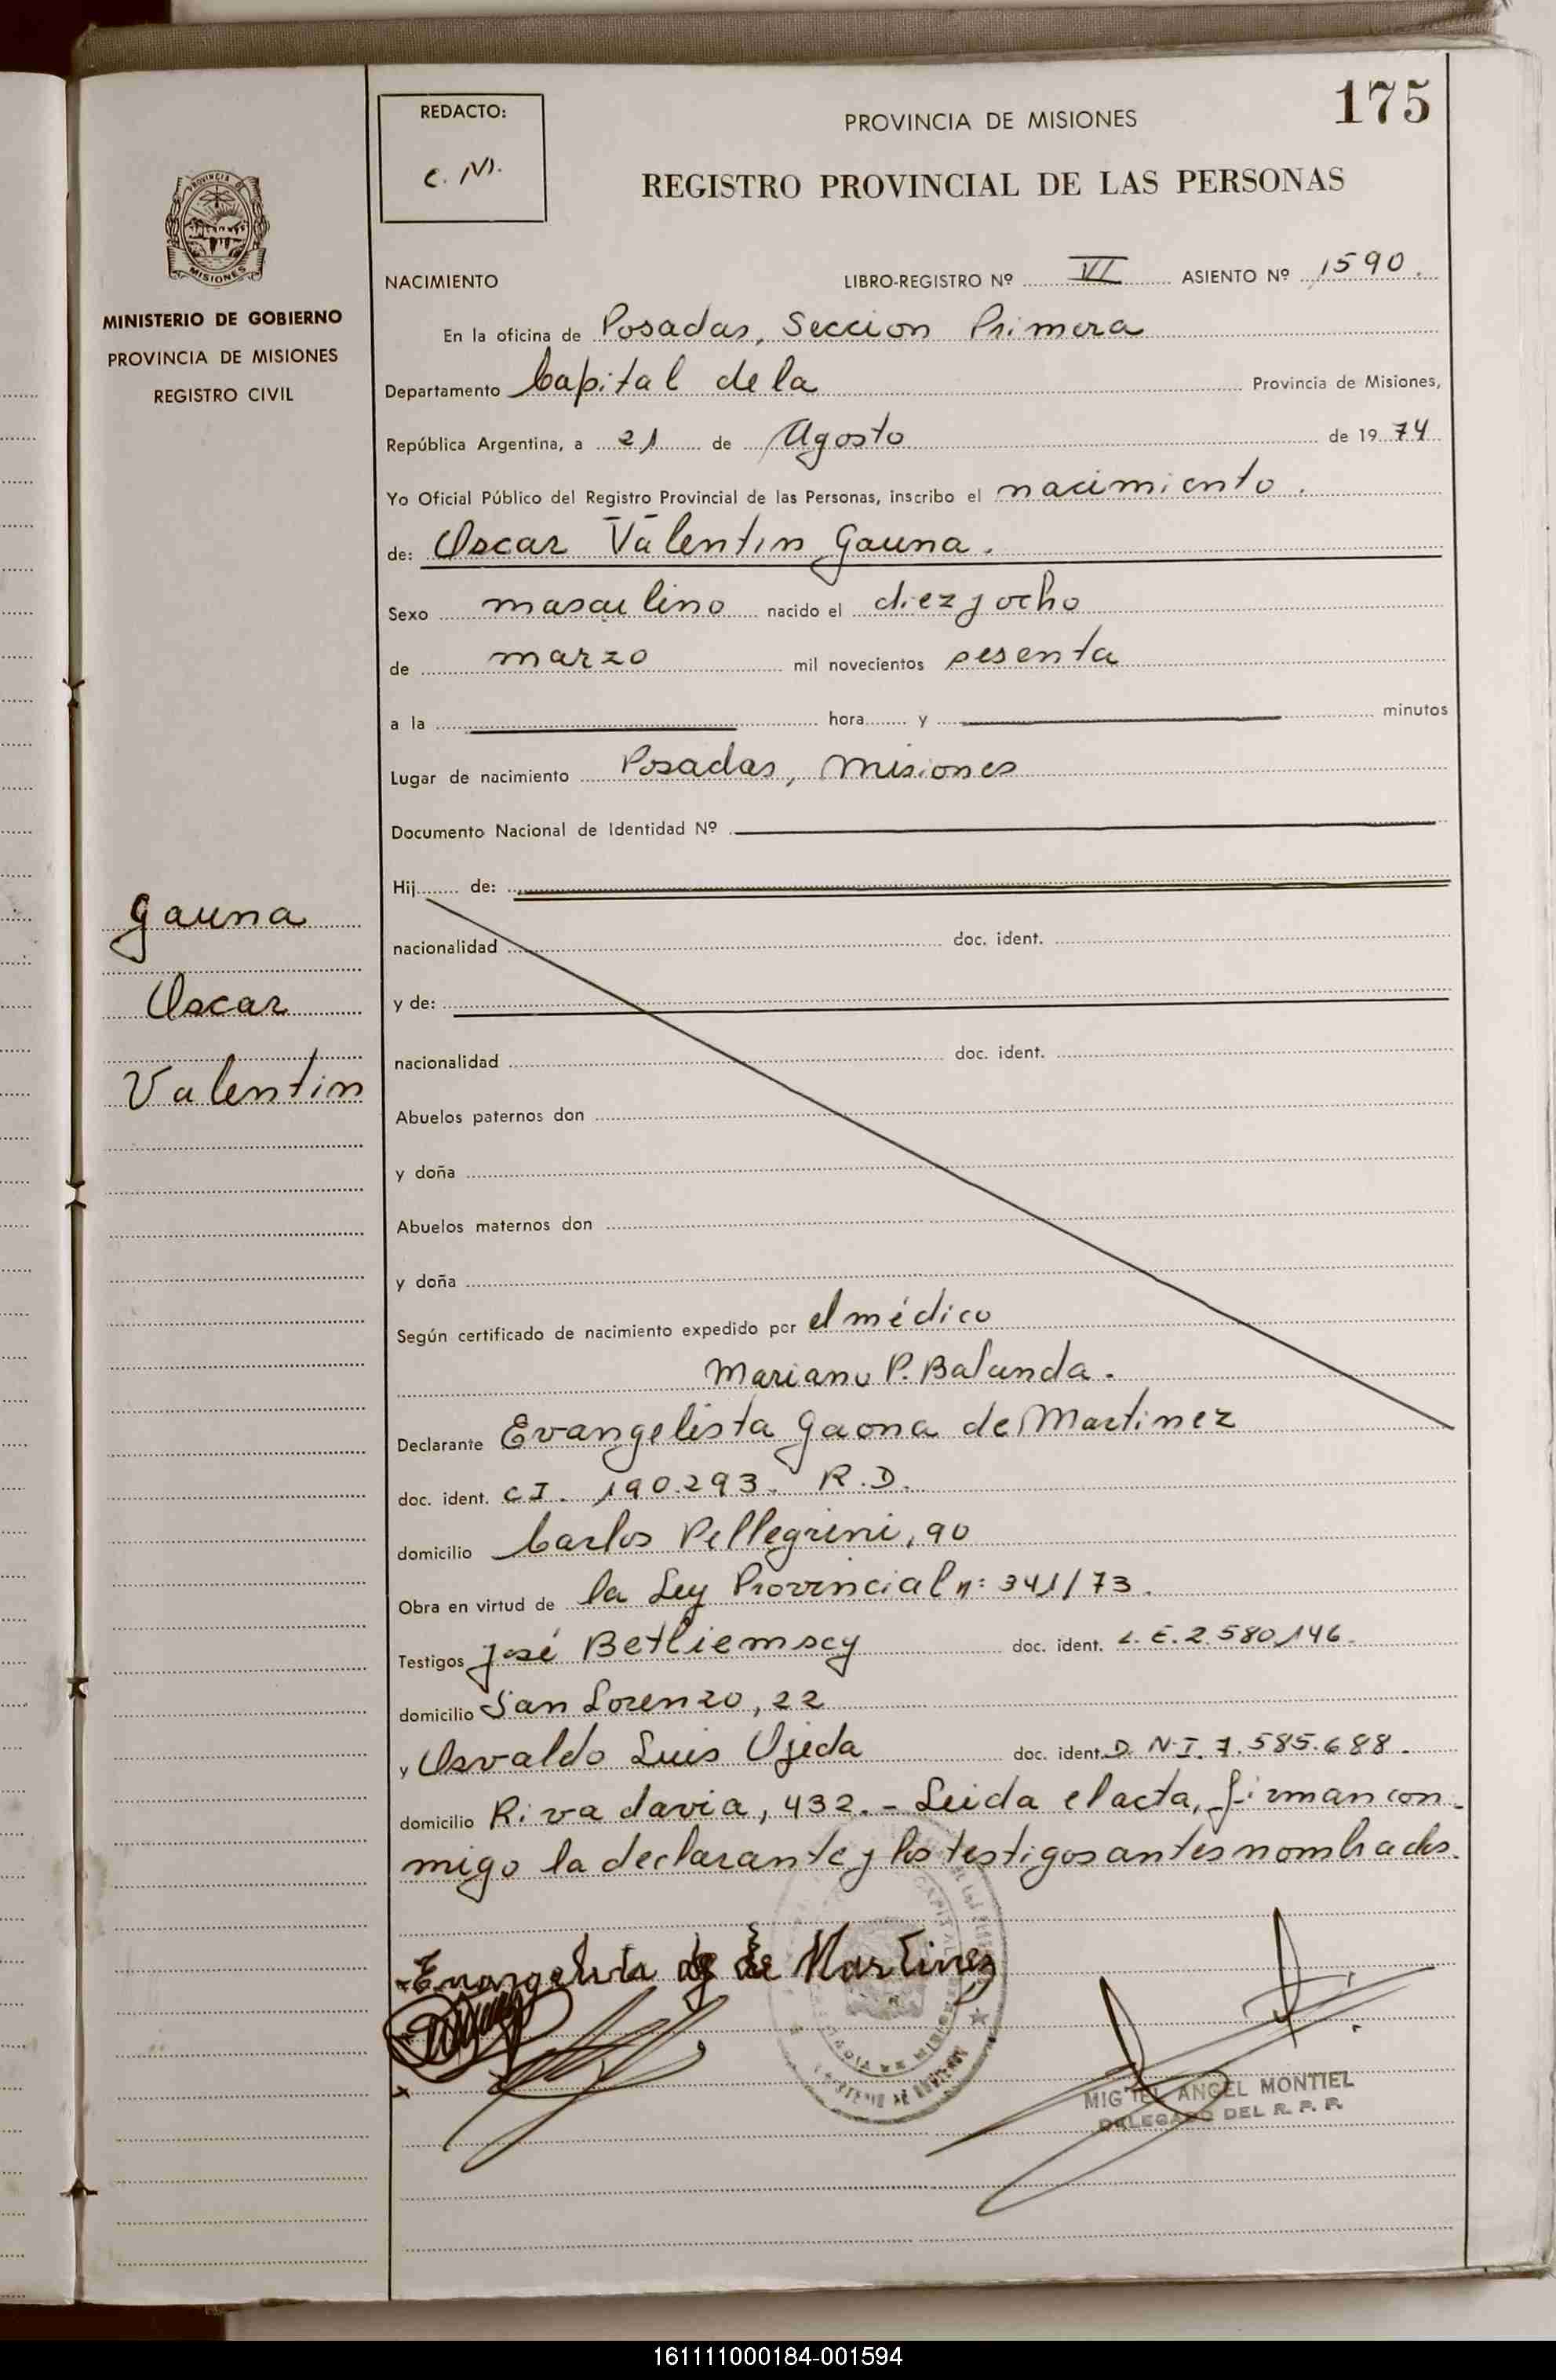 175
REDACTO:
C. M.
PROVINCIA DE MISIONES
REGISTRO PROVINCIAL DE LAS PERSONAS
PROVINCIA DE
MISIONES
MINISTERIO DE GOBIERNO
PROVINCIA DE MISIONES
REGISTRO CIVIL
NACIMIENTO LIBRO-REGISTRO Nº VI ASIENTO Nº 1590.
En la oficina de Posadas, Seccion Primera
Departamento Capital de la Provincia de Misiones,
República Argentina, a 21 de Agosto de 1974
Yo Oficial Público del Registro Provincial de las Personas, inscribo el nacimiento.
de: Oscar Valentin Gauna.
Sexo masculino nacido el diez y ocho
de marzo mil novecientos sesenta
a la hora y minutos
Lugar de nacimiento Posadas, Misiones
Documento Nacional de Identidad Nº
Hij de:
nacionalidad doc. ident.
y de:
nacionalidad doc. ident.
Abuelos paternos don
y doña
Abuelos maternos don
y doña
Gauna
Oscar
Valentin
Según certificado de nacimiento expedido por el médico
Mariano P. Balanda.
Declarante Evangelista Gaona de Martinez
doc. ident. C I. 190.293. R.D.
domicilio Carlos Pellegrini, 90
Obra en virtud de la Ley Provincial n: 341/73.
Testigos José Betliemscy doc. ident. L.E. 2.580.146.
domicilio San Lorenzo, 22
y Osvaldo Luis Ojeda doc. ident. D.N.I. 7.585.688.
domicilio Rivadavia, 432.- Leida el acta, firman con-
migo la declarante y los testigos antes nombrados.
de Martinez
MIGUEL ANGEL MONTIEL
DELEGADO DEL R. P. P.
161111000184-001594